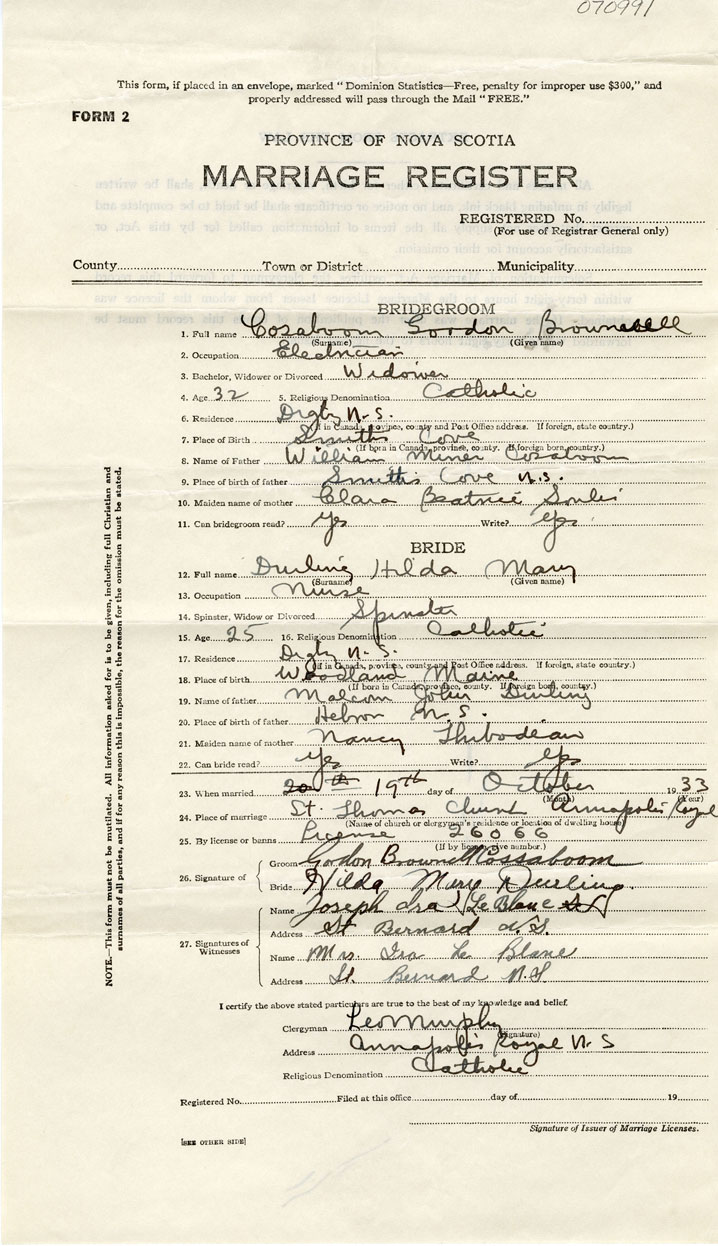 070991
This form, if placed in an envelope, marked "Dominion Statistics—Free, penalty for improper use $300," and
properly addressed will pass through the Mail "FREE."
FORM 2
PROVINCE OF NOVA SCOTIA
MARRIAGE REGISTER
REGISTERED No.
(For use of Registrar General only)
County Town or District Municipality
BRIDEGROOM
1. Full name Cosaboom Gordon Brownell
(Surname) (Given name)
2. Occupation Electrician
3. Bachelor, Widower or Divorced Widower
4. Age 32 5. Religious Denomination Catholic
6. Residence Digby N.S.
(If in Canada, province, county and Post Office address. If foreign, state country.)
7. Place of Birth Smiths Cove
(If born in Canada, province, county. If foreign born, country.)
8. Name of Father William Miner Cosaboom
9. Place of birth of father Smiths Cove N.S.
10. Maiden name of mother Clara Beatrice Soulis
11. Can bridegroom read? Yes Write? Yes
BRIDE
12. Full name Durling Hilda Mary
(Surname) (Given name)
13. Occupation Nurse
14. Spinster, Widow or Divorced Spinster
15. Age 25 16. Religious Denomination Catholic
17. Residence Digby N.S.
(If in Canada, province, county and Post Office address. If foreign, state country.)
18. Place of birth Woodland Maine
(If born in Canada, province, county. If foreign born, country.)
19. Name of father Malcom John Durling
20. Place of birth of father Hebron N.S.
21. Maiden name of mother Nancy Thibodeau
22. Can bride read? Yes Write? Yes
23. When married 20th 19th day of October 1933
(Month) (Year)
24. Place of marriage St. Thomas Church Annapolis Royal
(Name of church or clergyman's residence or location of dwelling house)
25. By license or banns License 26066
(If by license give number.)
26. Signature of Groom Gordon Brownell Cossaboom
Bride Hilda Mary Durling
27. Signatures of Witnesses Name Joseph Ira Le Blanc
Address St Bernard N.S.
Name Mrs. Ira Le Blanc
Address St. Bernard N.S.
I certify the above stated particulars are true to the best of my knowledge and belief.
Clergyman Leo Murphy
(Signature)
Address Annapolis Royal N.S
Religious Denomination Catholic
Registered No. Filed at this office day of 19
Signature of Issuer of Marriage Licenses.
[SEE OTHER SIDE]
NOTE.—This form must not be mutilated. All information asked for is to be given, including full Christian and
surnames of all parties, and if for any reason this is impossible, the reason for the omission must be stated.